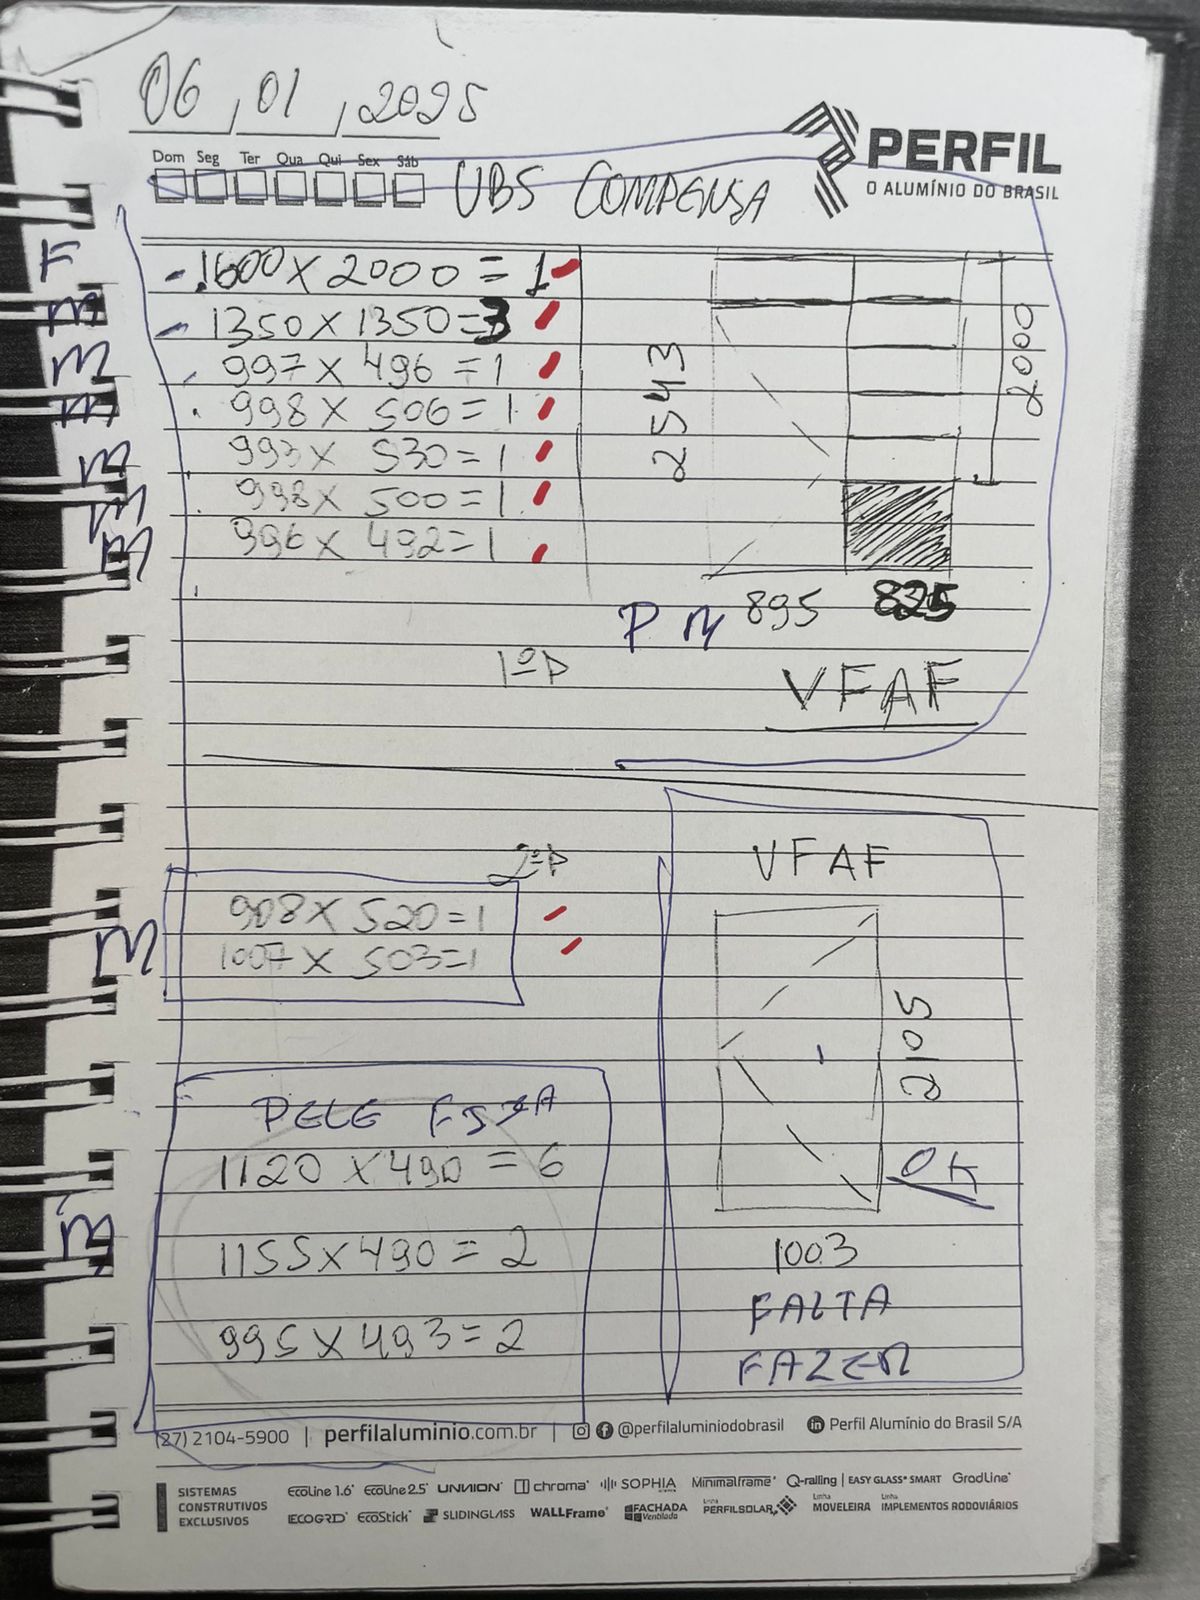 06 / 01 / 2025
Dom Seg Ter Qua Qui Sex Sáb
UBS COMPENSA
PERFIL
O ALUMÍNIO DO BRASIL
F
1600 X 2000 = 1
M
1350 X 1350 = 3
M
997 X 496 = 1
M
998 X 506 = 1
M
993 X 530 = 1
M
998 X 500 = 1
M
996 X 492 = 1
2543
2000
895
825
P M
VFAF
1ºP
2ºP
M
908 X 520 = 1
1007 X 503 = 1
VFAF
2105
OK
1003
FALTA
FAZER
PELE FIXA
1120 X 490 = 6
M
1155 X 490 = 2
995 X 493 = 2
(27) 2104-5900 | perfilaluminio.com.br | @perfilaluminiodobrasil Perfil Alumínio do Brasil S/A
SISTEMAS
CONSTRUTIVOS
EXCLUSIVOS
EcoLine 1.6 EcoLine 2.5 UNNION chroma SOPHIA Minimalframe Q-railing | EASY GLASS SMART GradLine
ECOGRID EcoStick SLIDINGLASS WALLFrame FACHADA Ventilada Linha PERFILSOLAR Linha MOVELEIRA Linha IMPLEMENTOS RODOVIÁRIOS